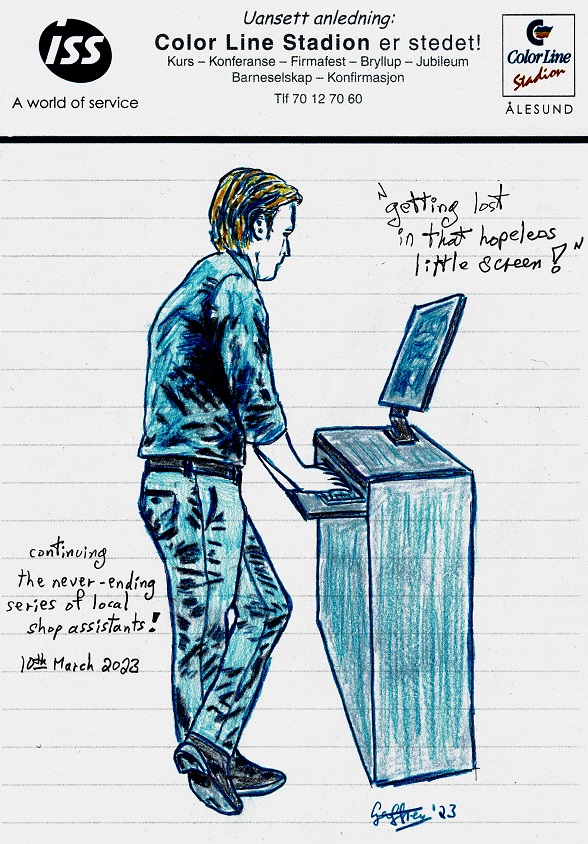 Uansett anledning:
ISS
Color Line Stadion er stedet!
Kurs – Konferanse – Firmafest – Bryllup – Jubileum
Barneselskap – Konfirmasjon
A world of service
Tlf 70 12 70 60
Color Line
Stadion
ÅLESUND
"getting lost
in that hopeless
little screen!"
continuing
the never-ending
series of local
shop assistants!
10th March 2023
Geffrey '23